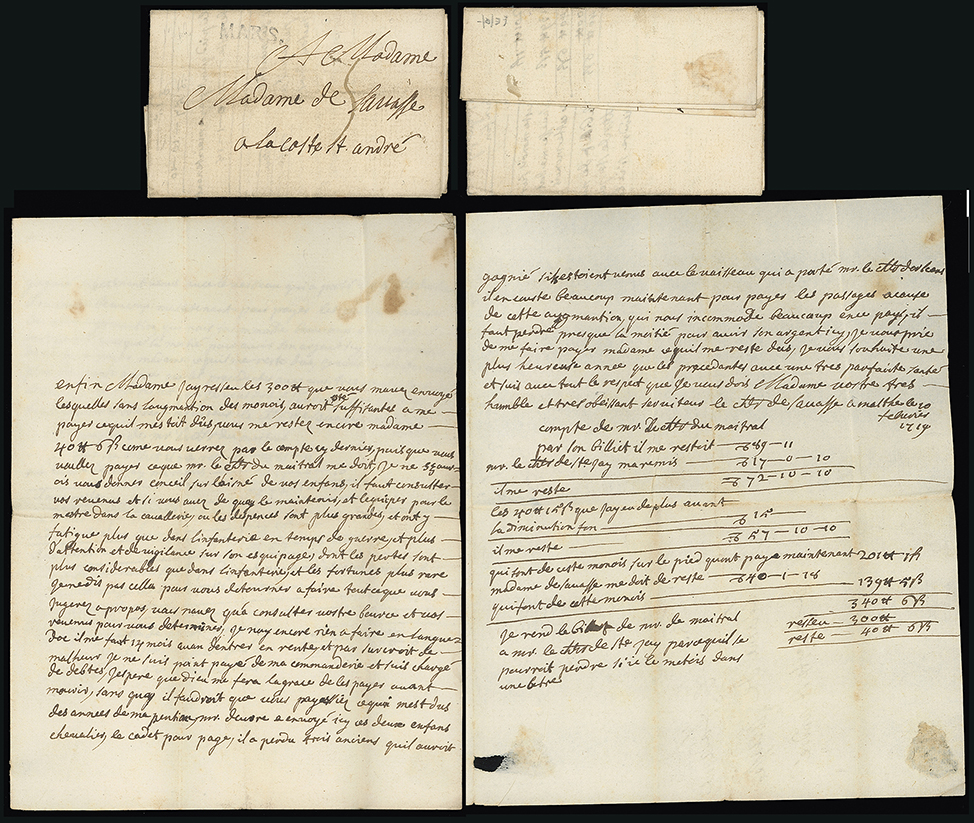 MARS
A Madame
Madame de Savasse
a la coste st. andré
enfin Madame jay resseu les 300tt que vous mavez envoyé
lesquelles sans laugmention des monois, auroit esté suffisantes a me
payer cequil mestoit dus, vous me restez encore madame
40tt 6ß come vous verrez par le compte cy dernier, puis que vous
vuillez payer ceque mr. le du maitral me doit, Je ne
ois vous donner conseil sur laisné de vos enfans, il faut consulter
vos revenus et si vous avez de quoy le maintenir, et lequiper pour le
mestre dans la cavallerie, ou les despences sont plus grandes, et ont y
fatigue plus que dans linfanterie en temps de guerre, et plus
dattention et de vigilance sur son esquipage, dont les pertes sont
plus considerables que dans linfanterie, et les fortunes plus rare
je ne dis pas cella pour vous detourner a faire tout ceque vous
Jugerez apropos, vous navez qua consulter vostre bource et vos
revenus pour vous determiner, Je nay encore rien a faire en Langue
Doc il me faut 14 mois avan dentrer en rente, et par surcroit de
malheur Je ne suis point payé de ma commanderie et suis chargé
de debtes, Jespere que dieu me fera la grace de les payer avant
mourir, sans quoy il faudroit que vous payassiez cequi mest dus
des années de ma pention, mr. a envoyé icy ces deux enfans
chevalier, le cadet pour page, il a perdu trois anciens quil auroit
gagnié sils estoient venus avec le vaisseau qui a porté mr. le
il en couste beaucoup maintenant pour payer les passages acause
de cette augmantion, qui nous incommode beaucoup en ce pays, il
faut perdre presque la moitié pour avoir son argent icy, Je vous prie
de me faire payer madame cequil me reste dus, Je vous souhaite une
plus heureuse année que les precedantes avec une tres parfaite santé
et suis avec tout le respect que Je vous dois Madame vostre tres
humble et tres obeissant serviteur le de Savasse a malthe le 10
febvrier
1719
compte de mr. le du maitral
par son billiet il me restoit 89 - 11
mr. le de ste Jay ma remis 17 - 0 - 10
il me reste 72 - 10 - 10
les 40tt 15ß que jay eu de plus avant
la diminution font 15
il me reste 57 - 10 - 10
qui font de cette monois sur le pied quont paye maintenant 201tt 1ß
madame de savasse me doit de reste 40 - 1 - 18
qui font de cette monois 139tt 5ß
340tt 6ß
resseu 300tt
reste 40tt 6ß
Je rend le billiet de mr. de maitral
a mr. le de ste Jay parcequil se
pourroit perdre si ie le metois dans
une letre